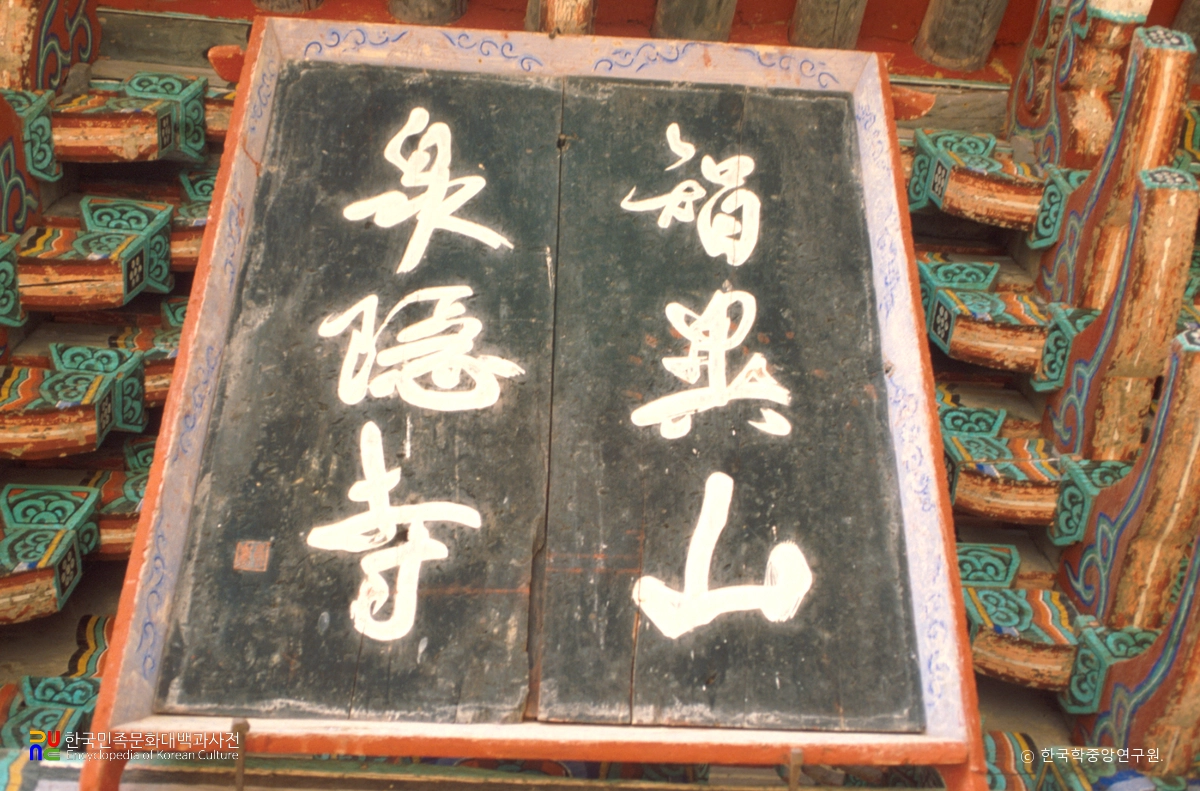 智異山
泉隱寺
한국민족문화대백과사전
Encyclopedia of Korean Culture
ⓒ 한국학중앙연구원.